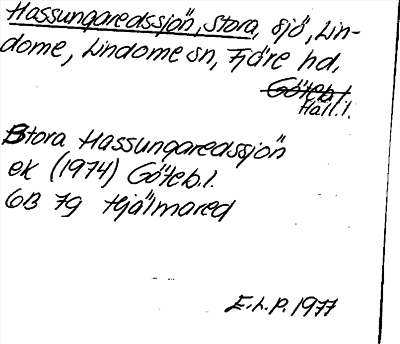 Hassungaredssjön, Stora, sjö, Lin-
dome, Lindome sn, Fjäre hd,
Göteb.l.
Hall.l.
Stora Hassungaredssjön
ek (1974) Göteb.l.
6B 7g Hjälmared
E.L.P. 1977